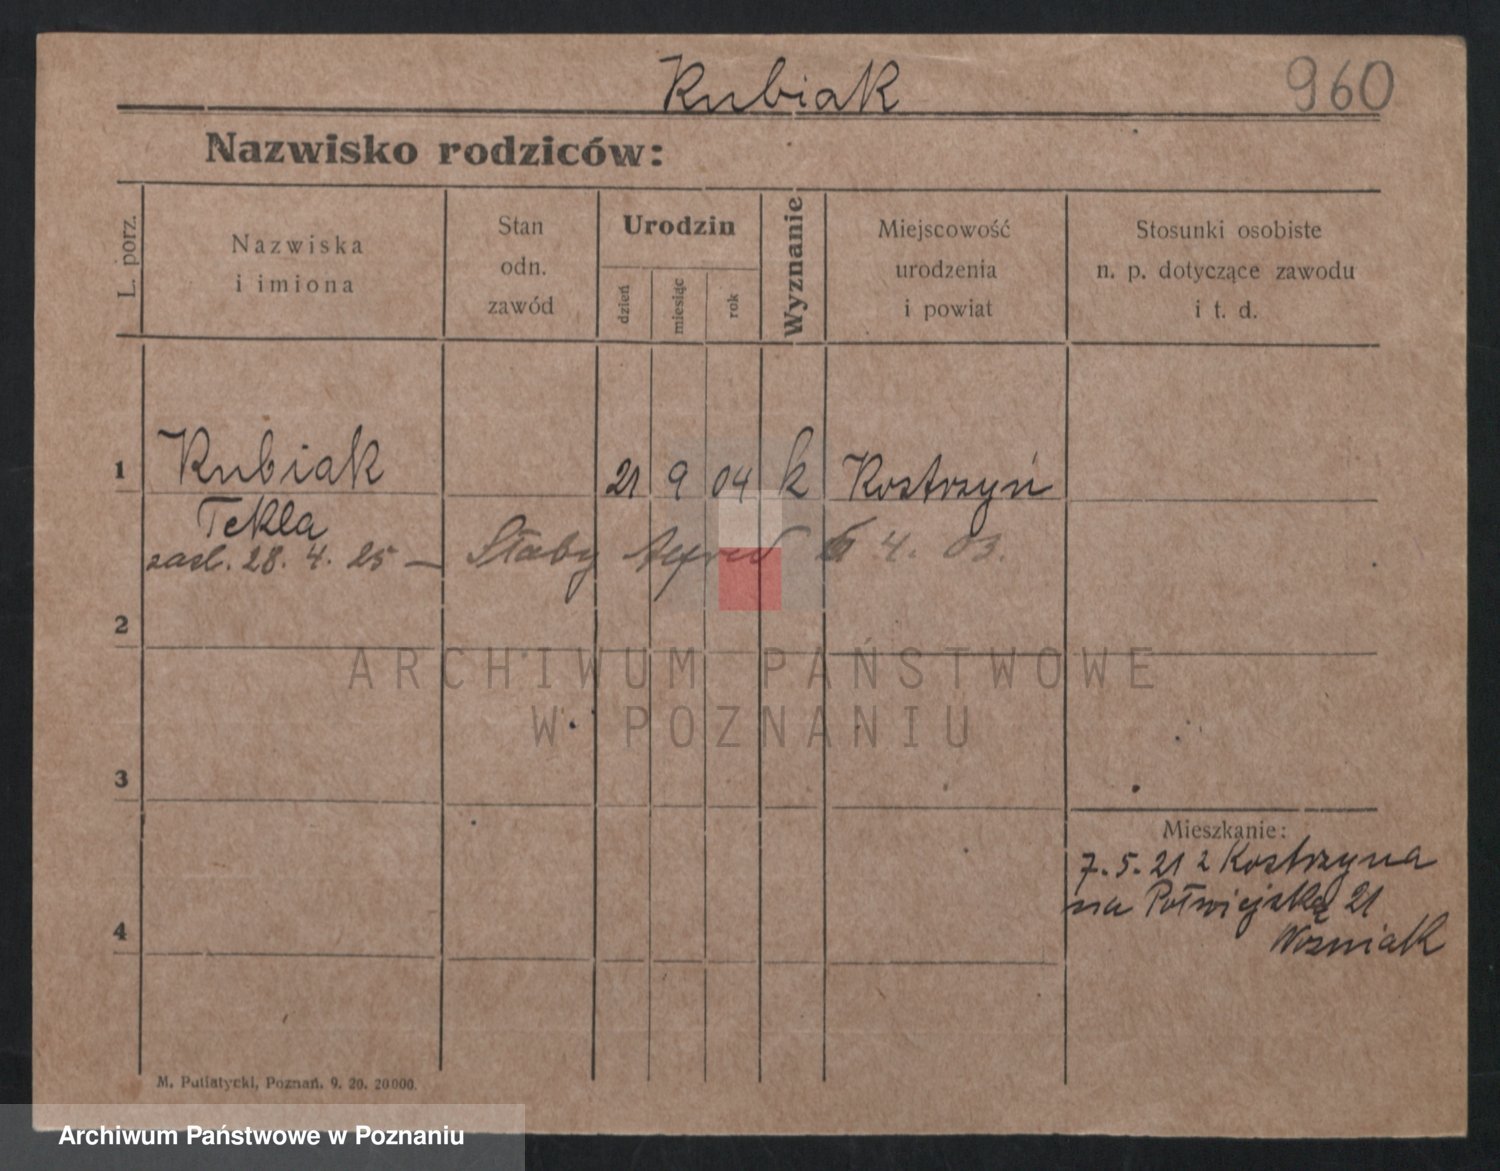 Kubiak
960
Nazwisko rodziców:
L. porz.
Nazwiska
i imiona
Stan
odn.
zawód
Urodzin
dzień
miesiąc
rok
Wyznanie
Miejscowość
urodzenia
i powiat
Stosunki osobiste
n. p. dotyczące zawodu
i t. d.
1 Kubiak 21 9 04 k Kostrzyń
Tekla
zasl. 28. 4. 25 — Słaby Alfred 4. 03.
2
ARCHIWUM PAŃSTWOWE
W POZNANIU
3
Mieszkanie:
7. 5. 21 z Kostrzyna
na Półwiejską 21
Woźniak
4
M. Putiatycki, Poznań. 9. 20. 20000.
Archiwum Państwowe w Poznaniu